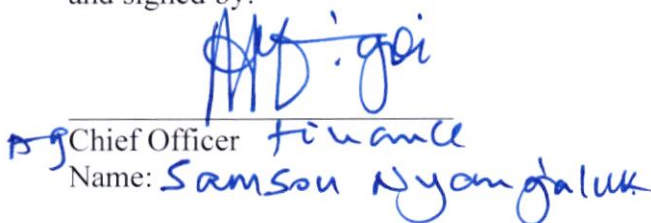 and signed by:
Ag Chief Officer Finance
Name: Samson Nyangaluk